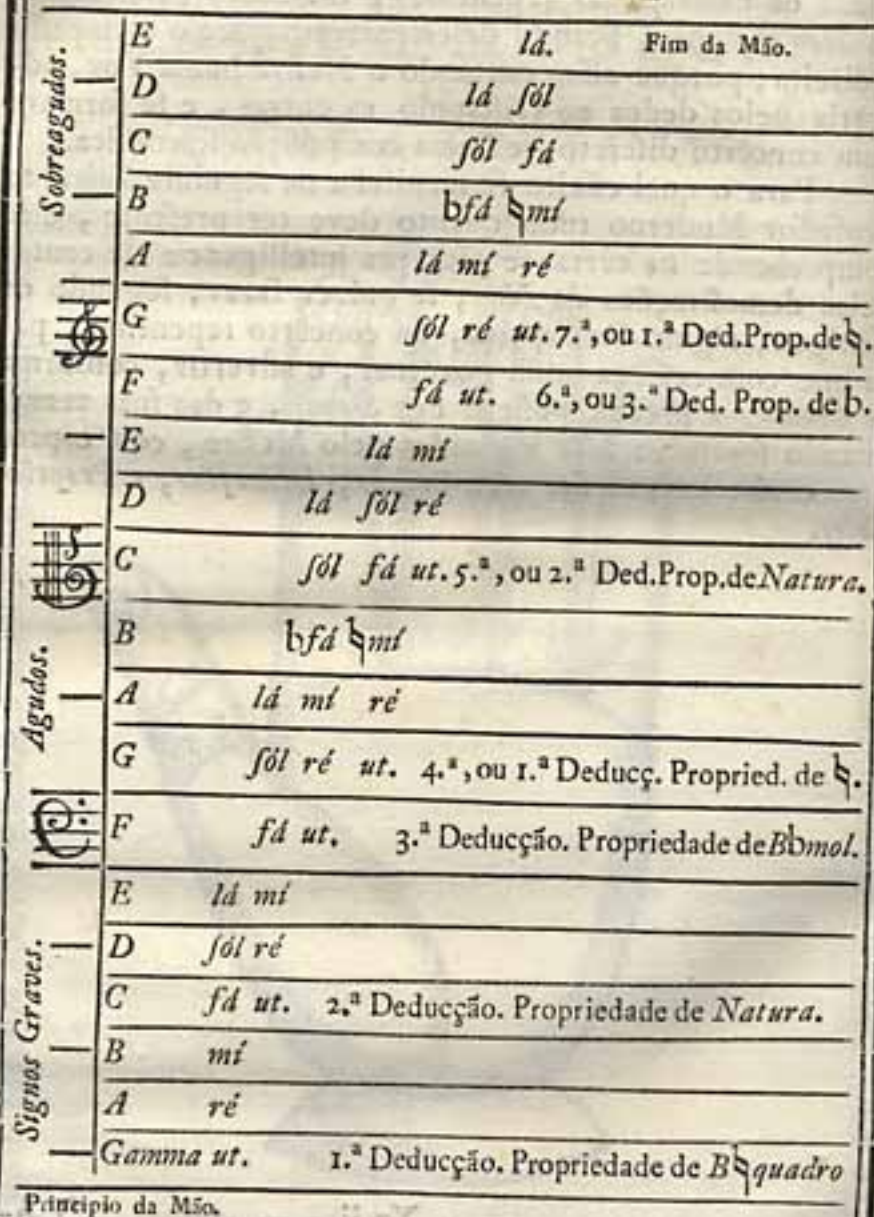 E lá. Fim da Mão.
D lá ſól
C ſól fá
B bfá ♮mí
A lá mí ré
G ſól ré ut. 7.ª, ou 1.ª Ded.Prop.de ♮.
F fá ut. 6.ª, ou 3.ª Ded. Prop. de b.
E lá mí
D lá ſól ré
C ſól fá ut. 5.ª, ou 2.ª Ded.Prop.de Natura.
B bfá ♮mí
A lá mí ré
G ſól ré ut. 4.ª, ou 1.ª Deducç. Propried. de ♮.
F fá ut. 3.ª Deducção. Propriedade de Bbmol.
E lá mí
D ſól ré
C fá ut. 2.ª Deducção. Propriedade de Natura.
B mí
A ré
Gamma ut. 1.ª Deducção. Propriedade de B♮quadro
Principio da Mão.
Sobreagudos.
Agudos.
Signos Graves.